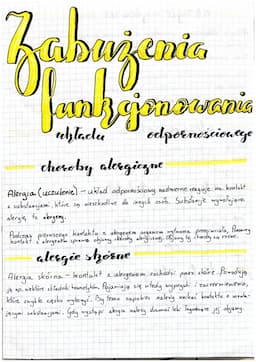 Zaburzenia
funkcjonowania
układu odpornościowego
choroby alergiczne
Alergia (uczulenie) - układ odpornościowy nadmiernie reaguje na kontakt
z substancjami, które są nieszkodliwe dla innych osób. Substancje wywołujące
alergię to alergeny.
Podczas pierwszego kontaktu z alergenem organizm wytwarza przeciwciała. Ponowny
kontakt z alergenem sprawia objawy choroby alergicznej. Objawy tej choroby są różne.
alergie skórne
Alergia skórna - kontakt z alergenem zachodzi przez skórę. Powodują
ją np. niektóre składniki kosmetyków. Pojawiają się wtedy wypryski i zaczerwienienia,
które zwykle szybko
kontaktu z
substancjami. Gdy wystąpi alergia należy
jej objawy.